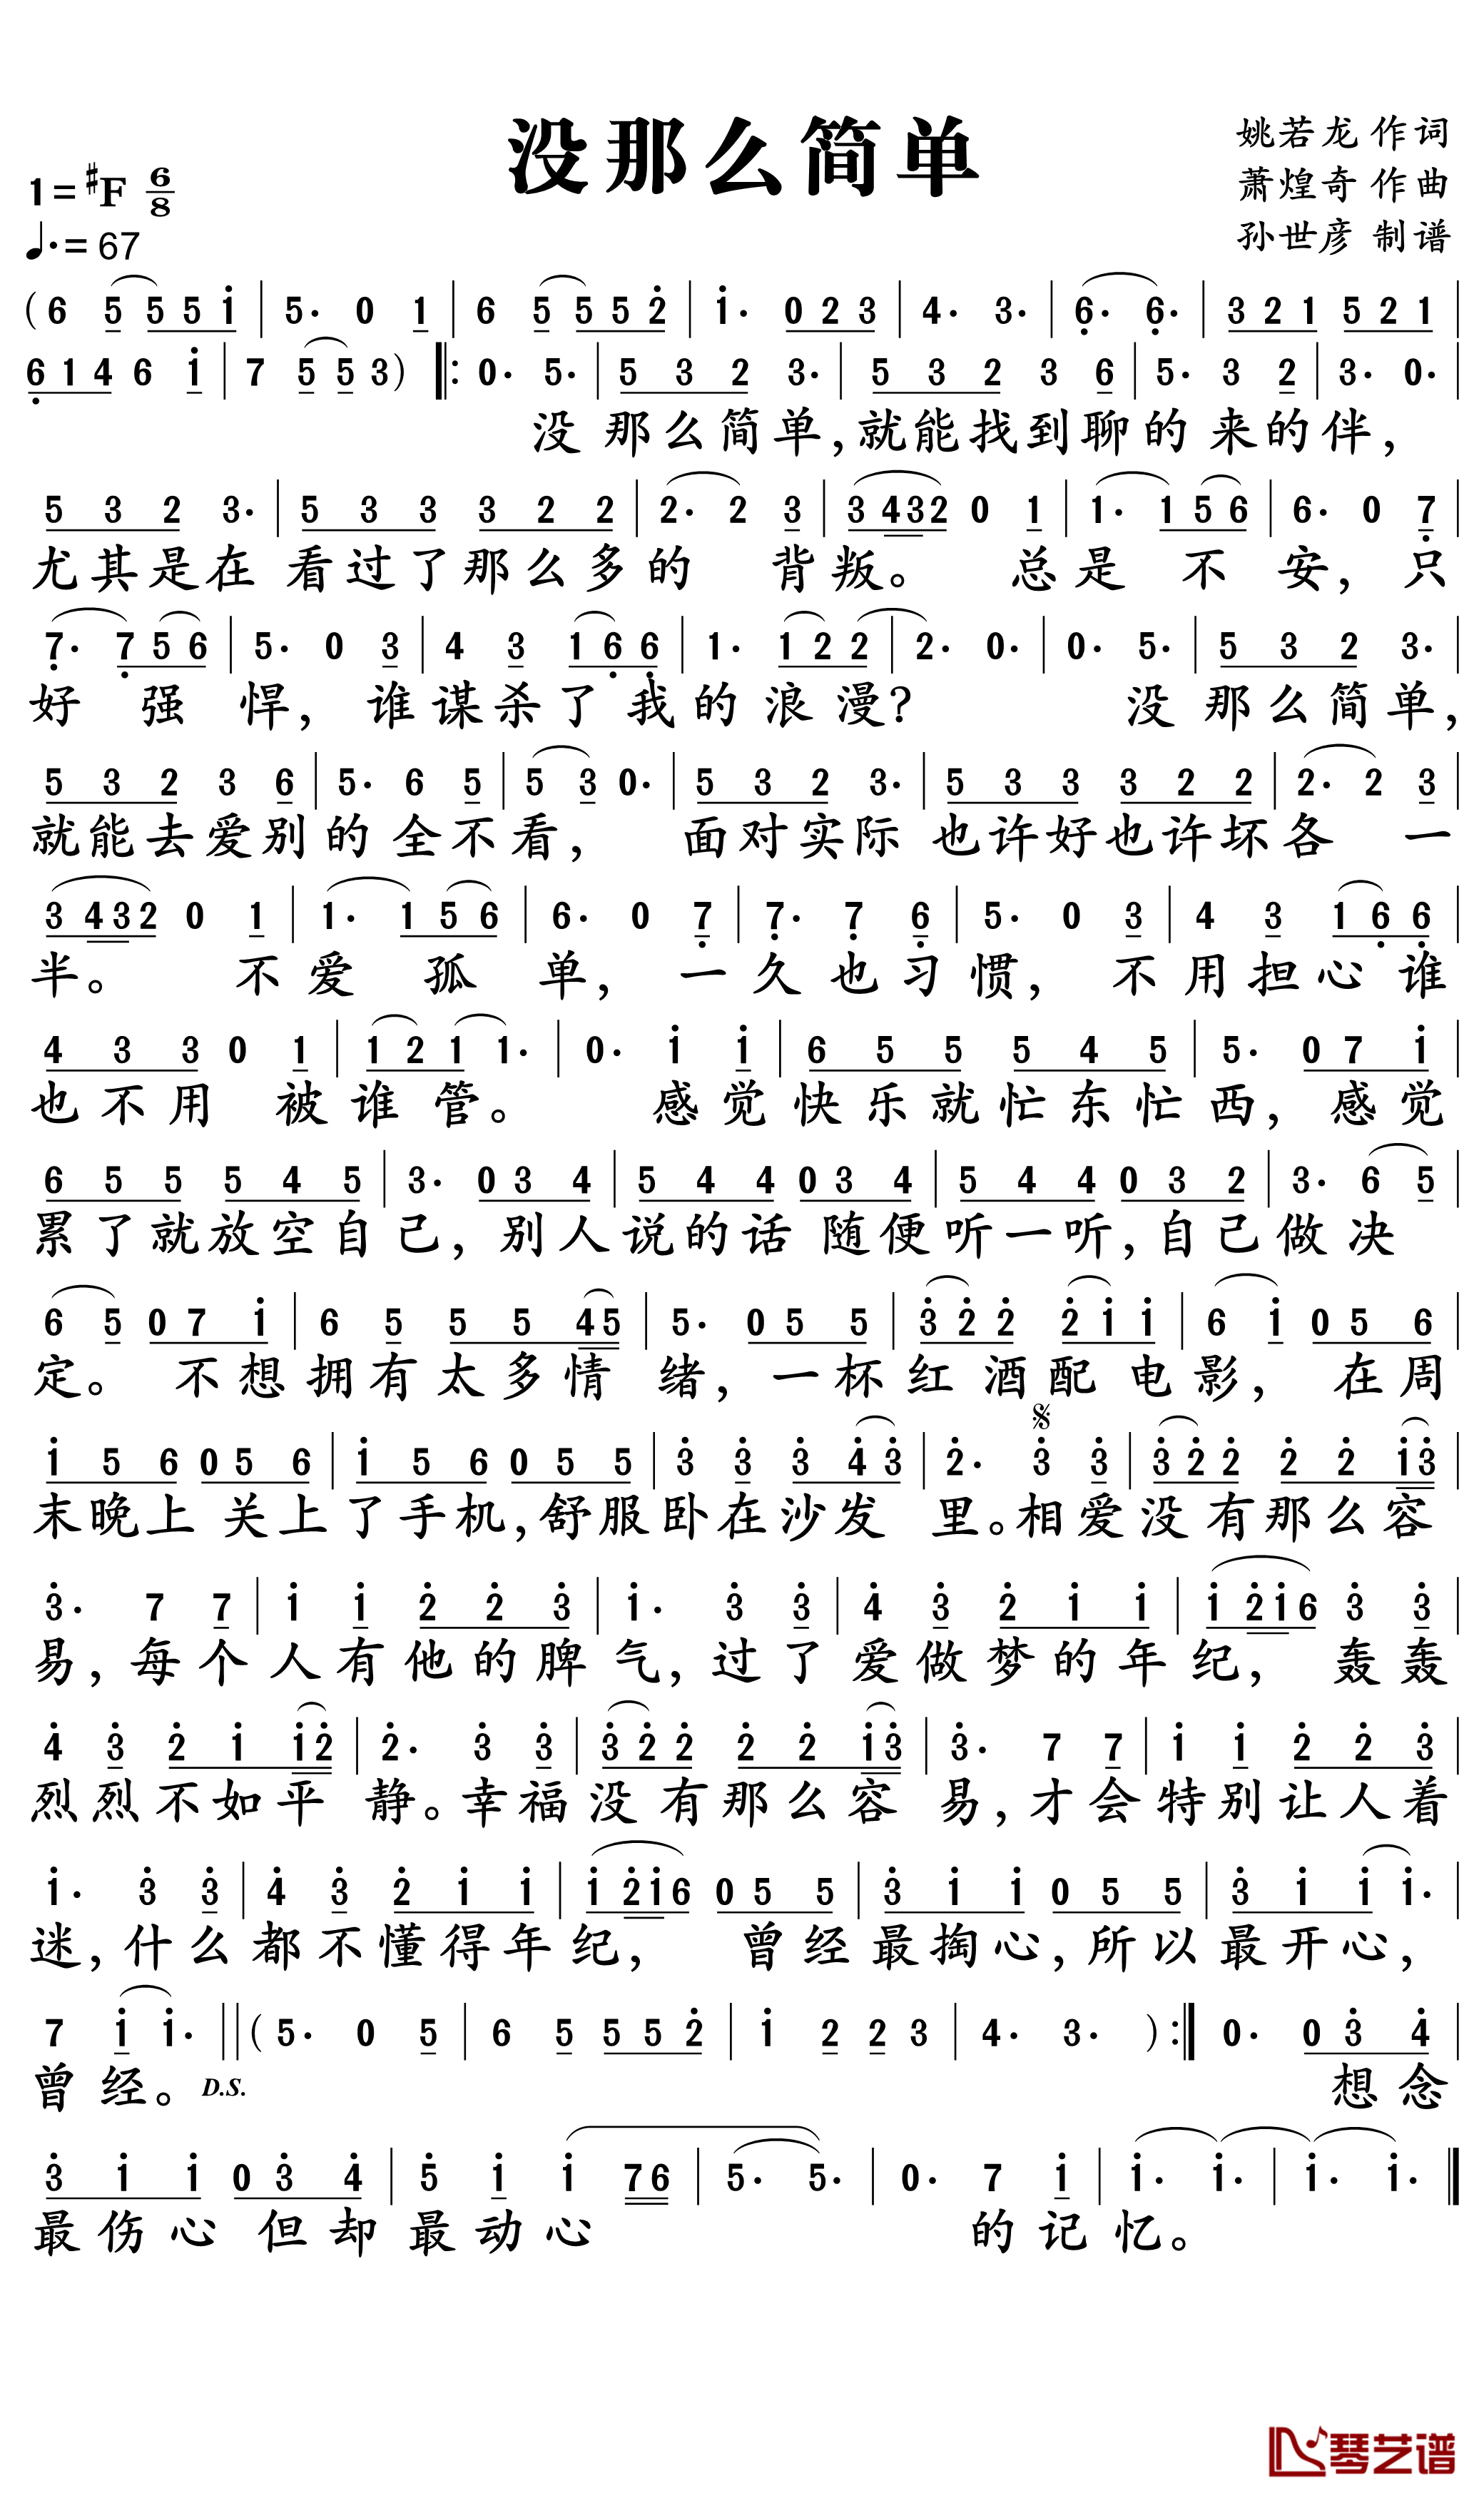 没那么简单
姚若龙 作词
萧煌奇 作曲
孙世彦 制谱
1=#F 6/8
♩.=67
(6 5 5 5 i | 5· 0 1 | 6 5 5 5 2̇ | i· 0 2 3 | 4· 3· | 6̣· 6̣· | 3 2 1 5 2 1 |
6̣ 1 4 6 i | 7 5 5 3) ‖: 0· 5· | 5 3 2 3· | 5 3 2 3 6 | 5· 3 2 | 3· 0· |
没 那么简单,就能找到聊的 来的伴,
5 3 2 3· | 5 3 3 3 2 2 | 2· 2 3 | 3 4 3 2 0 1 | 1· 1 5 6 | 6· 0 7̣ |
尤其是在 看过了那么多的 背叛。 总是 不 安, 只
7̣· 7̣ 5 6 | 5· 0 3 | 4 3 1 6̣ 6̣ | 1· 1 2 2 | 2· 0· | 0· 5· | 5 3 2 3· |
好 强 悍, 谁谋杀了 我的浪漫? 没 那么简单,
5 3 2 3 6 | 5· 6 5 | 5 3 0· | 5 3 2 3· | 5 3 3 3 2 2 | 2· 2 3 |
就能去爱别的 全不看, 面对实际 也许好也许坏各 一
3 4 3 2 0 1 | 1· 1 5 6 | 6· 0 7̣ | 7̣· 7̣ 6̣ | 5· 0 3 | 4 3 1 6̣ 6̣ |
半。 不爱 孤 单, 一久也习惯, 不用担心谁
4 3 3 0 1 | 1 2 1 1· | 0· i i | 6 5 5 5 4 5 | 5· 0 7 i |
也不用 被谁管。 感觉快乐就忙东忙西, 感觉
6 5 5 5 4 5 | 3· 0 3 4 | 5 4 4 0 3 4 | 5 4 4 0 3 2 | 3· 6 5 |
累了就放空自己, 别人说的话 随便听一听,自己做决
6 5 0 7 i | 6 5 5 5 4 5 | 5· 0 5 5 | 3̇ 2̇ 2̇ 2̇ i i | 6 i 0 5 6 |
定。 不想拥有太多情 绪,一杯红酒配电影, 在周
i 5 6 0 5 6 | i 5 6 0 5 5 | 3̇ 3̇ 3̇ 4̇ 3̇ | 2̇· 3̇ 3̇ | 3̇ 2̇ 2̇ 2̇ 2̇ i 3̇ |
末晚上 关上了手机,舒服卧在沙发 里。相爱没有那么容
3̇· 7 7 | i i 2̇ 2̇ 3̇ | i· 3̇ 3̇ | 4̇ 3̇ 2̇ i i | i 2̇ i 6 3̇ 3̇ |
易,每个人有他的脾气,过了爱做梦的年纪, 轰轰
4̇ 3̇ 2̇ i i 2̇ | 2̇· 3̇ 3̇ | 3̇ 2̇ 2̇ 2̇ 2̇ i 3̇ | 3̇· 7 7 | i i 2̇ 2̇ 3̇ |
烈烈不如平 静。幸福没有那么容 易,才会特别让人着
i· 3̇ 3̇ | 4̇ 3̇ 2̇ i i | i 2̇ i 6 0 5 5 | 3̇ i i 0 5 5 | 3̇ i i i· |
迷,什么都不懂得年纪, 曾经最掏心,所以最开心,
7 i i· ‖ (5· 0 5 | 6 5 5 5 2̇ | i 2 2 3 | 4· 3· ) :‖ 0· 0 3̇ 4̇ |
曾经。D.S. 想念
3̇ i i 0 3̇ 4̇ | 5̇ i i 7 6 | 5· 5· | 0· 7 i | i· i· | i· i· ‖
最伤心 但却最动心 的记忆。
琴艺谱